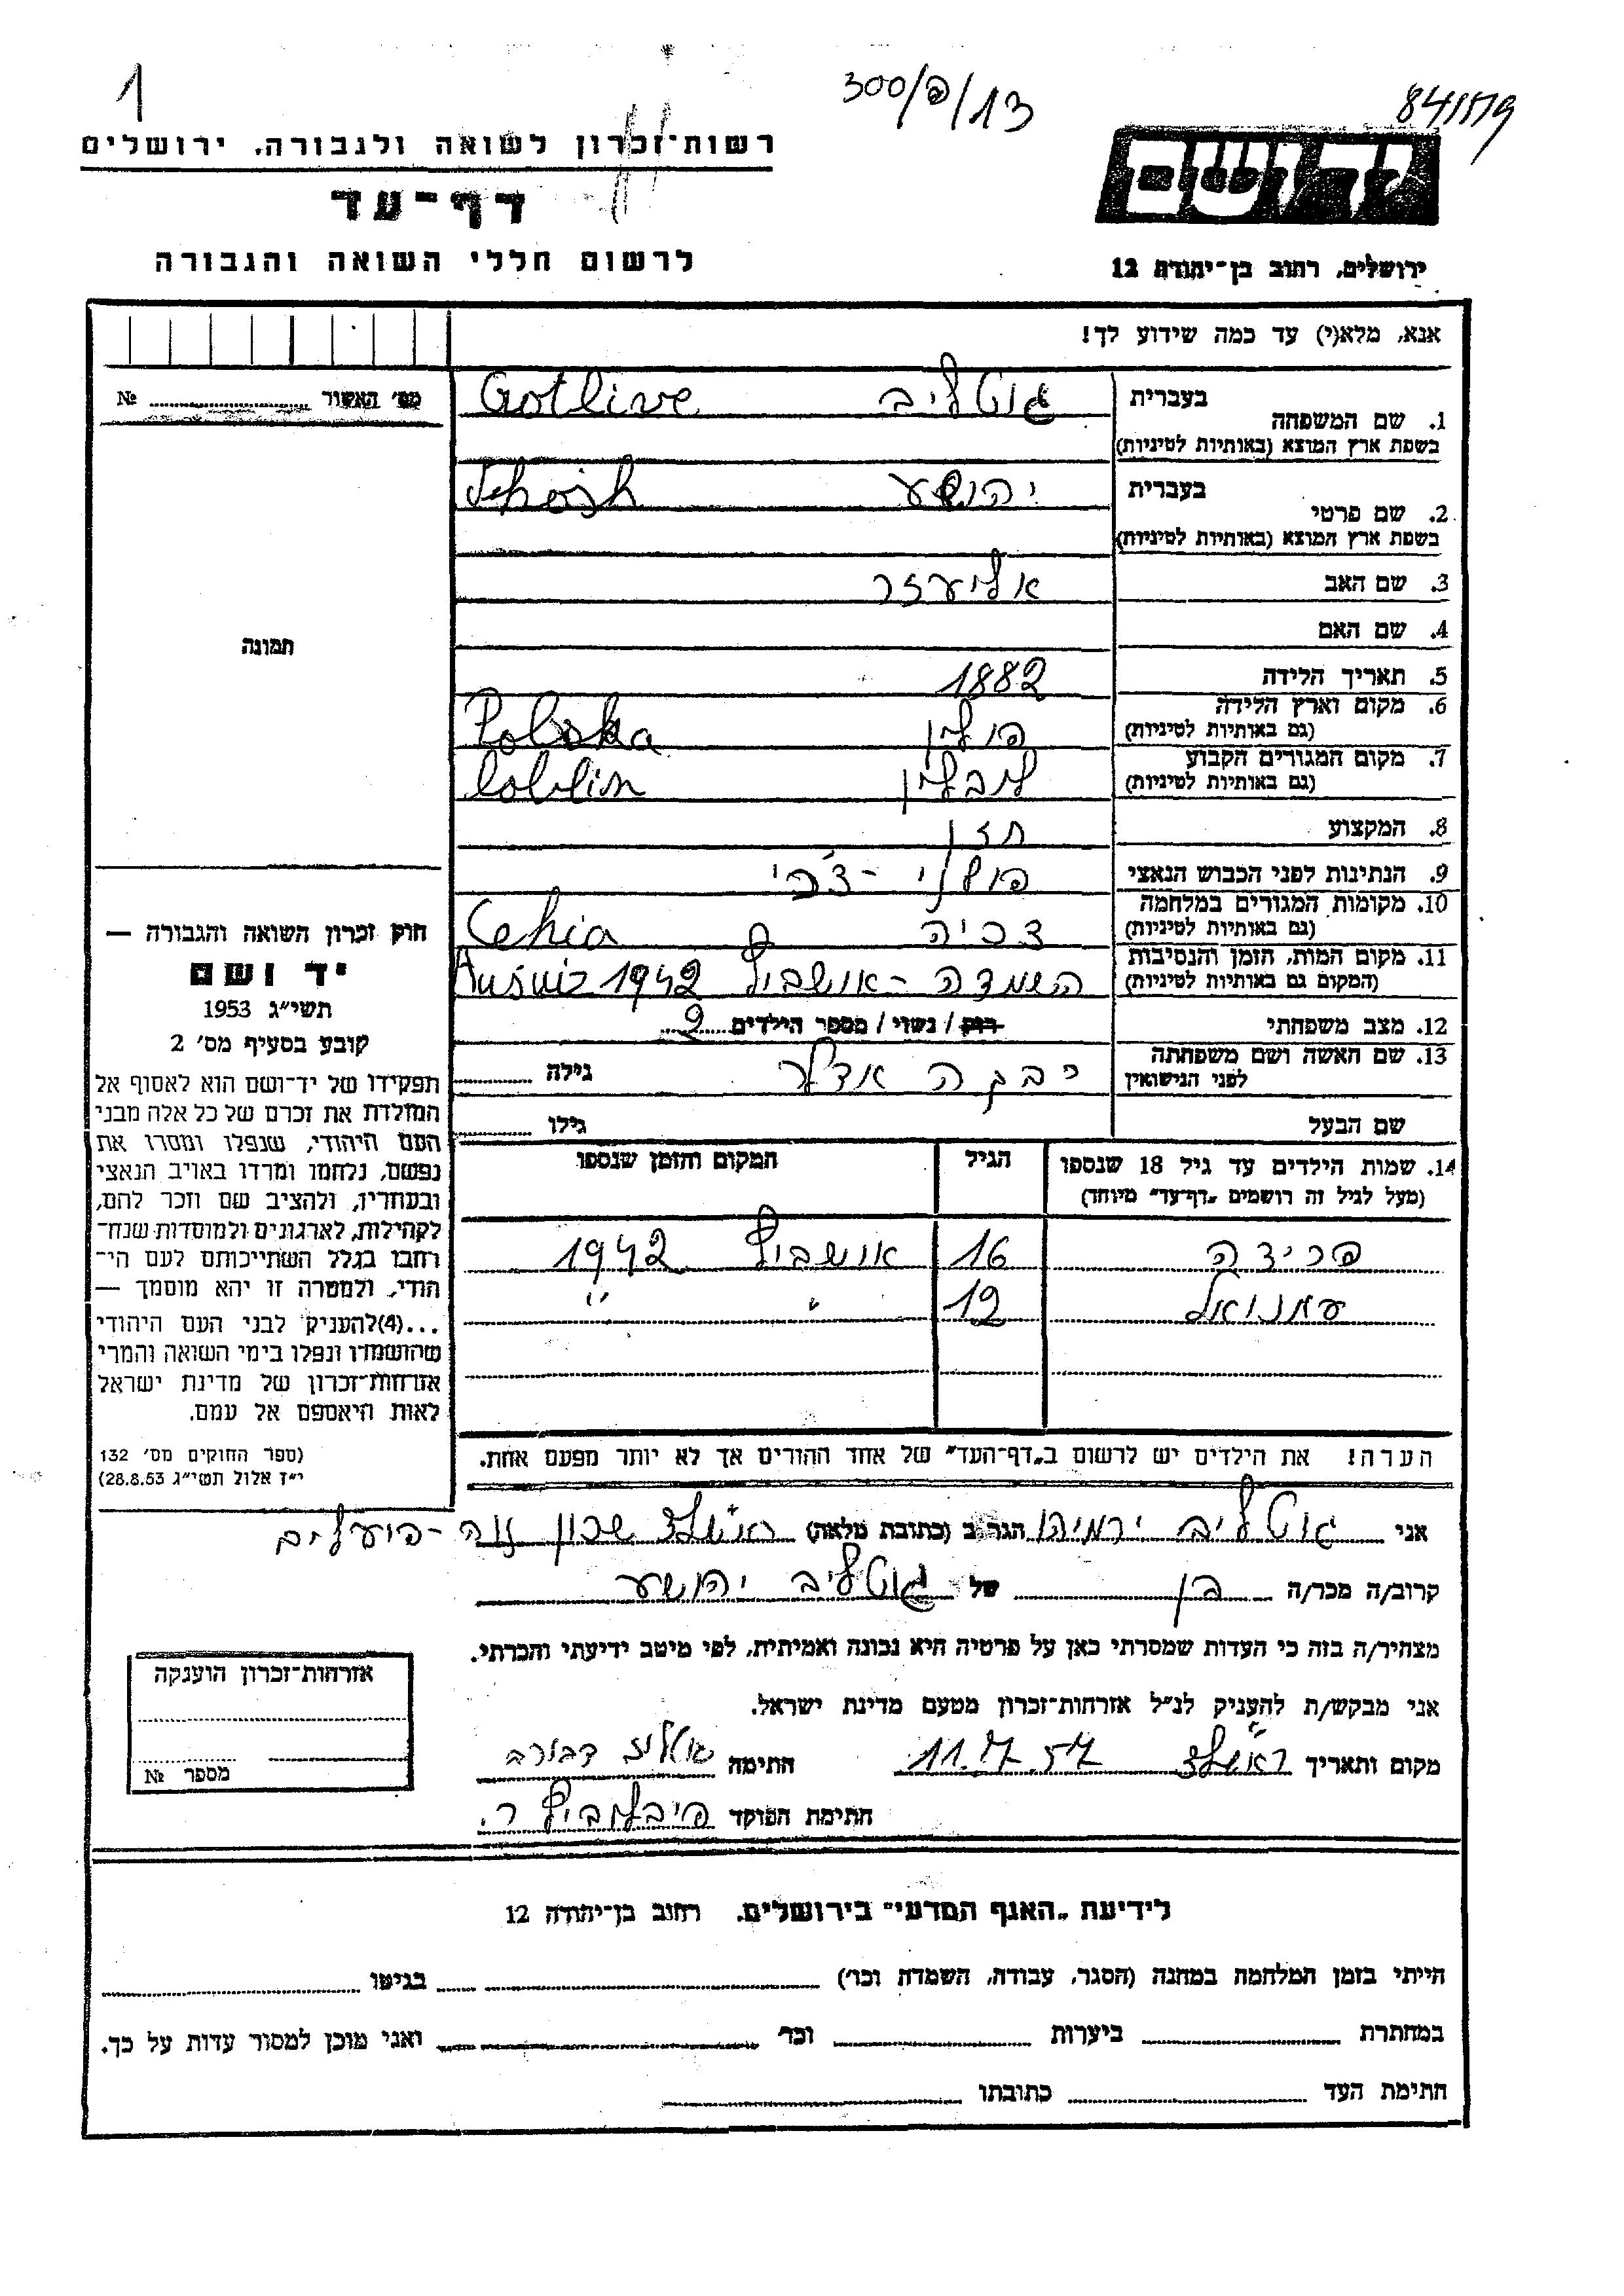 1
300/פ/13
84/179
רשות־זכרון לשואה ולגבורה. ירושלים
דף־עד
לרשום חללי השואה והגבורה
ידושם
ירושלים, רחוב בן־יהודה 12
אנא, מלא(י) עד כמה שידוע לך!
מס׳ האשור № ....................
תמונה
חוק זכרון השואה והגבורה —
יד ושם
תשי״ג 1953
קובע בסעיף מס׳ 2
תפקידו של יד־ושם הוא לאסוף אל
המולדת את זכרם של כל אלה מבני
העם היהודי, שנפלו ומסרו את
נפשם, נלחמו ומרדו באויב הנאצי
ובעוזריו, ולהציב שם וזכר להם,
לקהילות, לארגונים ולמוסדות שנח־
רבו בגלל השתייכותם לעם הי־
הודי, ולמטרה זו יהא מוסמך —
...(4)להעניק לבני העם היהודי
שהושמדו ונפלו בימי השואה והמרי
אזרחות־זכרון של מדינת ישראל
לאות היאספם אל עמם.
(ספר החוקים מס׳ 132
י״ז אלול תשי״ג 28.8.53)
בעברית גוטליב Gotlive
1. שם המשפחה
בשפת ארץ המוצא (באותיות לטיניות)
בעברית יהושע
2. שם פרטי
בשפת ארץ המוצא (באותיות לטיניות)
3. שם האב אליעזר
4. שם האם
5. תאריך הלידה 1882
6. מקום וארץ הלידה פולין Polska
(גם באותיות לטיניות)
7. מקום המגורים הקבוע לובלין Loblin
(גם באותיות לטיניות)
8. המקצוע חזן
9. הנתינות לפני הכבוש הנאצי פולני - צ׳כי
10. מקומות המגורים במלחמה צכיה Cehia
(גם באותיות לטיניות)
11. מקום המות, הזמן והנסיבות השמדה - אושביץ 1942 Aušwiz
(המקום גם באותיות לטיניות)
12. מצב משפחתי רוק / נשוי / מספר הילדים 2
13. שם האשה ושם משפחתה רבקה אדלר גילה
לפני הנישואין
שם הבעל גילו
14. שמות הילדים עד גיל 18 שנספו הגיל המקום והזמן שנספו
(מעל לגיל זה רושמים „דף־עד״ מיוחד)
פרידה 16 אושביץ 1942
עמנואל 12 " "
הערה! את הילדים יש לרשום ב„דף־העד״ של אחד ההורים אך לא יותר מפעם אחת.
אני גוטליב ירמיהו הגר ב (כתובת מלאה) ראשל״צ שכון נוה - פועלים
קרוב/ה מכר/ה בן של גוטליב יהושע
מצהיר/ה בזה כי העדות שמסרתי כאן על פרטיה היא נכונה ואמיתית, לפי מיטב ידיעתי והכרתי.
אני מבקש/ת להעניק לנ״ל אזרחות־זכרון מטעם מדינת ישראל.
מקום ותאריך ראשל״צ 11.7.57 חתימה
חתימת הפוקד
אזרחות־זכרון הוענקה
מספר №
לידיעת „האגף המדעי״ בירושלים. רחוב בן־יהודה 12
הייתי בזמן המלחמה במחנה (הסגר, עבודה, השמדה וכו׳) .................... בגיטו ....................
במחתרת .................... ביערות .................... וכו׳ .................... ואני מוכן למסור עדות על כך.
חתימת העד .................... כתובתו ....................